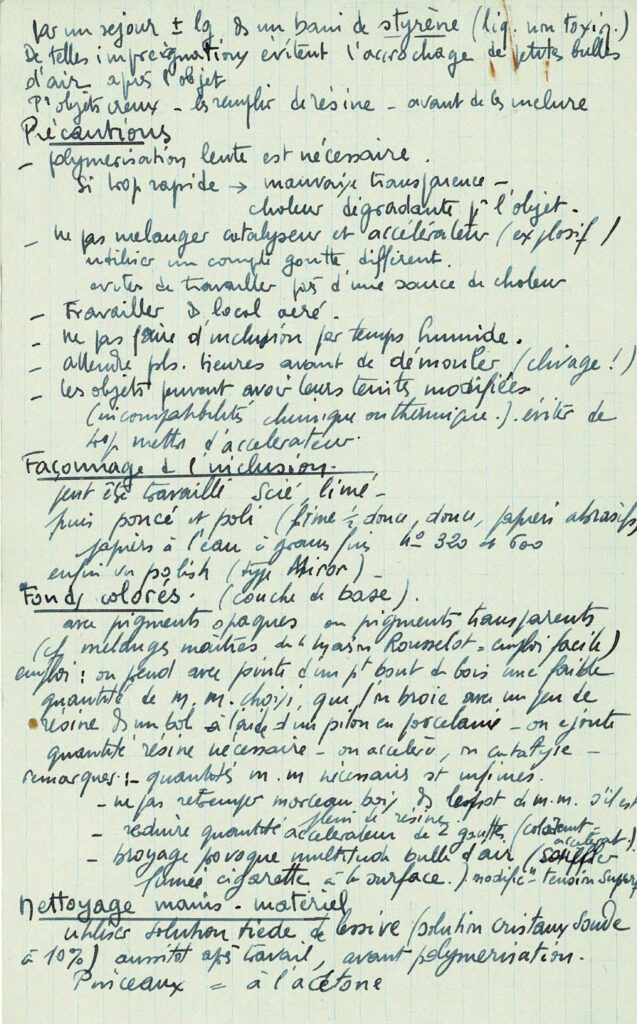 par un séjour ± lg ds un bain de styrène (liq. non toxiq.)
De telles imprégnations évitent l'accrochage de petites bulles
d'air après l'objet
Pr objets creux - les remplir de résine - avant de les inclure
Précautions
- polymérisation lente est nécessaire.
Si trop rapide → mauvaise transparence -
chaleur dégradante pr l'objet.
- ne pas mélanger catalyseur et accélérateur (explosif)
utiliser un compte goutte différent.
éviter de travailler près d'une source de chaleur
- Travailler ds local aéré.
- ne pas faire d'inclusion par temps humide.
- attendre pls. heures avant de démouler (clivage!)
- les objets peuvent avoir leurs teintes modifiées
(incompatibilités chimique ou thermique.). éviter de
trop mettre d'accélérateur.
Façonnage de l'inclusion.
peut être travaillé scié, limé -
puis poncé et poli (lime ½ douce, douce, papiers abrasifs,
papiers à l'eau à grains fins nº 320 et 600
enfin un polish (type Miror) -
Fonds colorés. (couche de base).
avec pigments opaques ou pigments transparents
(cf mélanges maîtres de la maison Rousselot = emploi facile)
emploi: on prend avec pointe d'un pt bout de bois une faible
quantité de m.m. choisi, que l'on broie avec un peu de
résine ds un bol à l'aide d'un pilon en porcelaine - on ajoute
quantité résine nécessaire - on accélère, on catalyse -
remarques: - quantités m.m nécessaires st infimes.
- ne pas retremper morceau bois ds le pot de m.m. s'il est
plein de résine
- réduire quantité accélérateur de 2 gouttes (colorant accélérant.)
- broyage provoque multitude bulle d'air (souffler
fumée cigarette à la surface.) modifie tension superf
Nettoyage mains - matériel
utiliser solution tiède de lessive (solution cristaux soude
à 10%) aussitôt après travail, avant polymérisation.
Pinceaux = à l'acétone